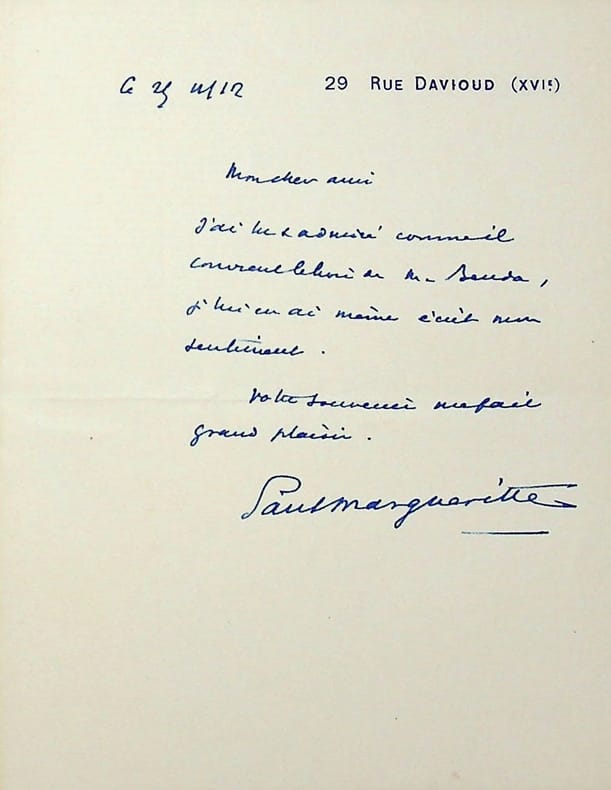 29 RUE DAVIOUD (XVIᵉ)
Mon cher ami
J'ai lu & admiré comme il
convient le livre de M. Benda,
je lui en ai même écrit mon
sentiment.
Votre souvenir me fait
grand plaisir.
Paul Margueritte